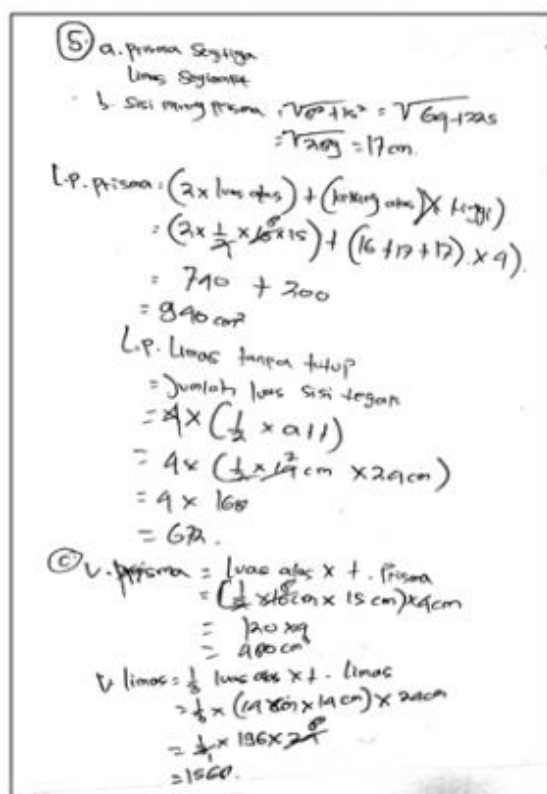 5 a. Prisma Segitiga
Limas Segiempat
b. Sisi miring Prisma = √8² + 15² = √64 + 225
= √289 = 17 cm.
L.p. prisma = (2 x luas alas) + (keliling alas) x tinggi)
= (2 x 1/2 x 16 x 15) + (16 + 17 + 17) x 4)
= 240 + 200
= 440 cm²
L.p. Limas tanpa tutup
= Jumlah luas sisi tegak
= 4 x (1/2 x a t)
= 4 x (1/2 x 14 cm x 24 cm)
= 4 x 168
= 672.
c V. prisma = luas alas x t. Prisma
= (1/2 x 16 cm x 15 cm) x 4 cm
= 120 x 4
= 480 cm
V limas = 1/3 luas alas x t. Limas
= 1/3 x (14 cm x 14 cm) x 24 cm
= 1/3 x 196 x 24
= 1568.